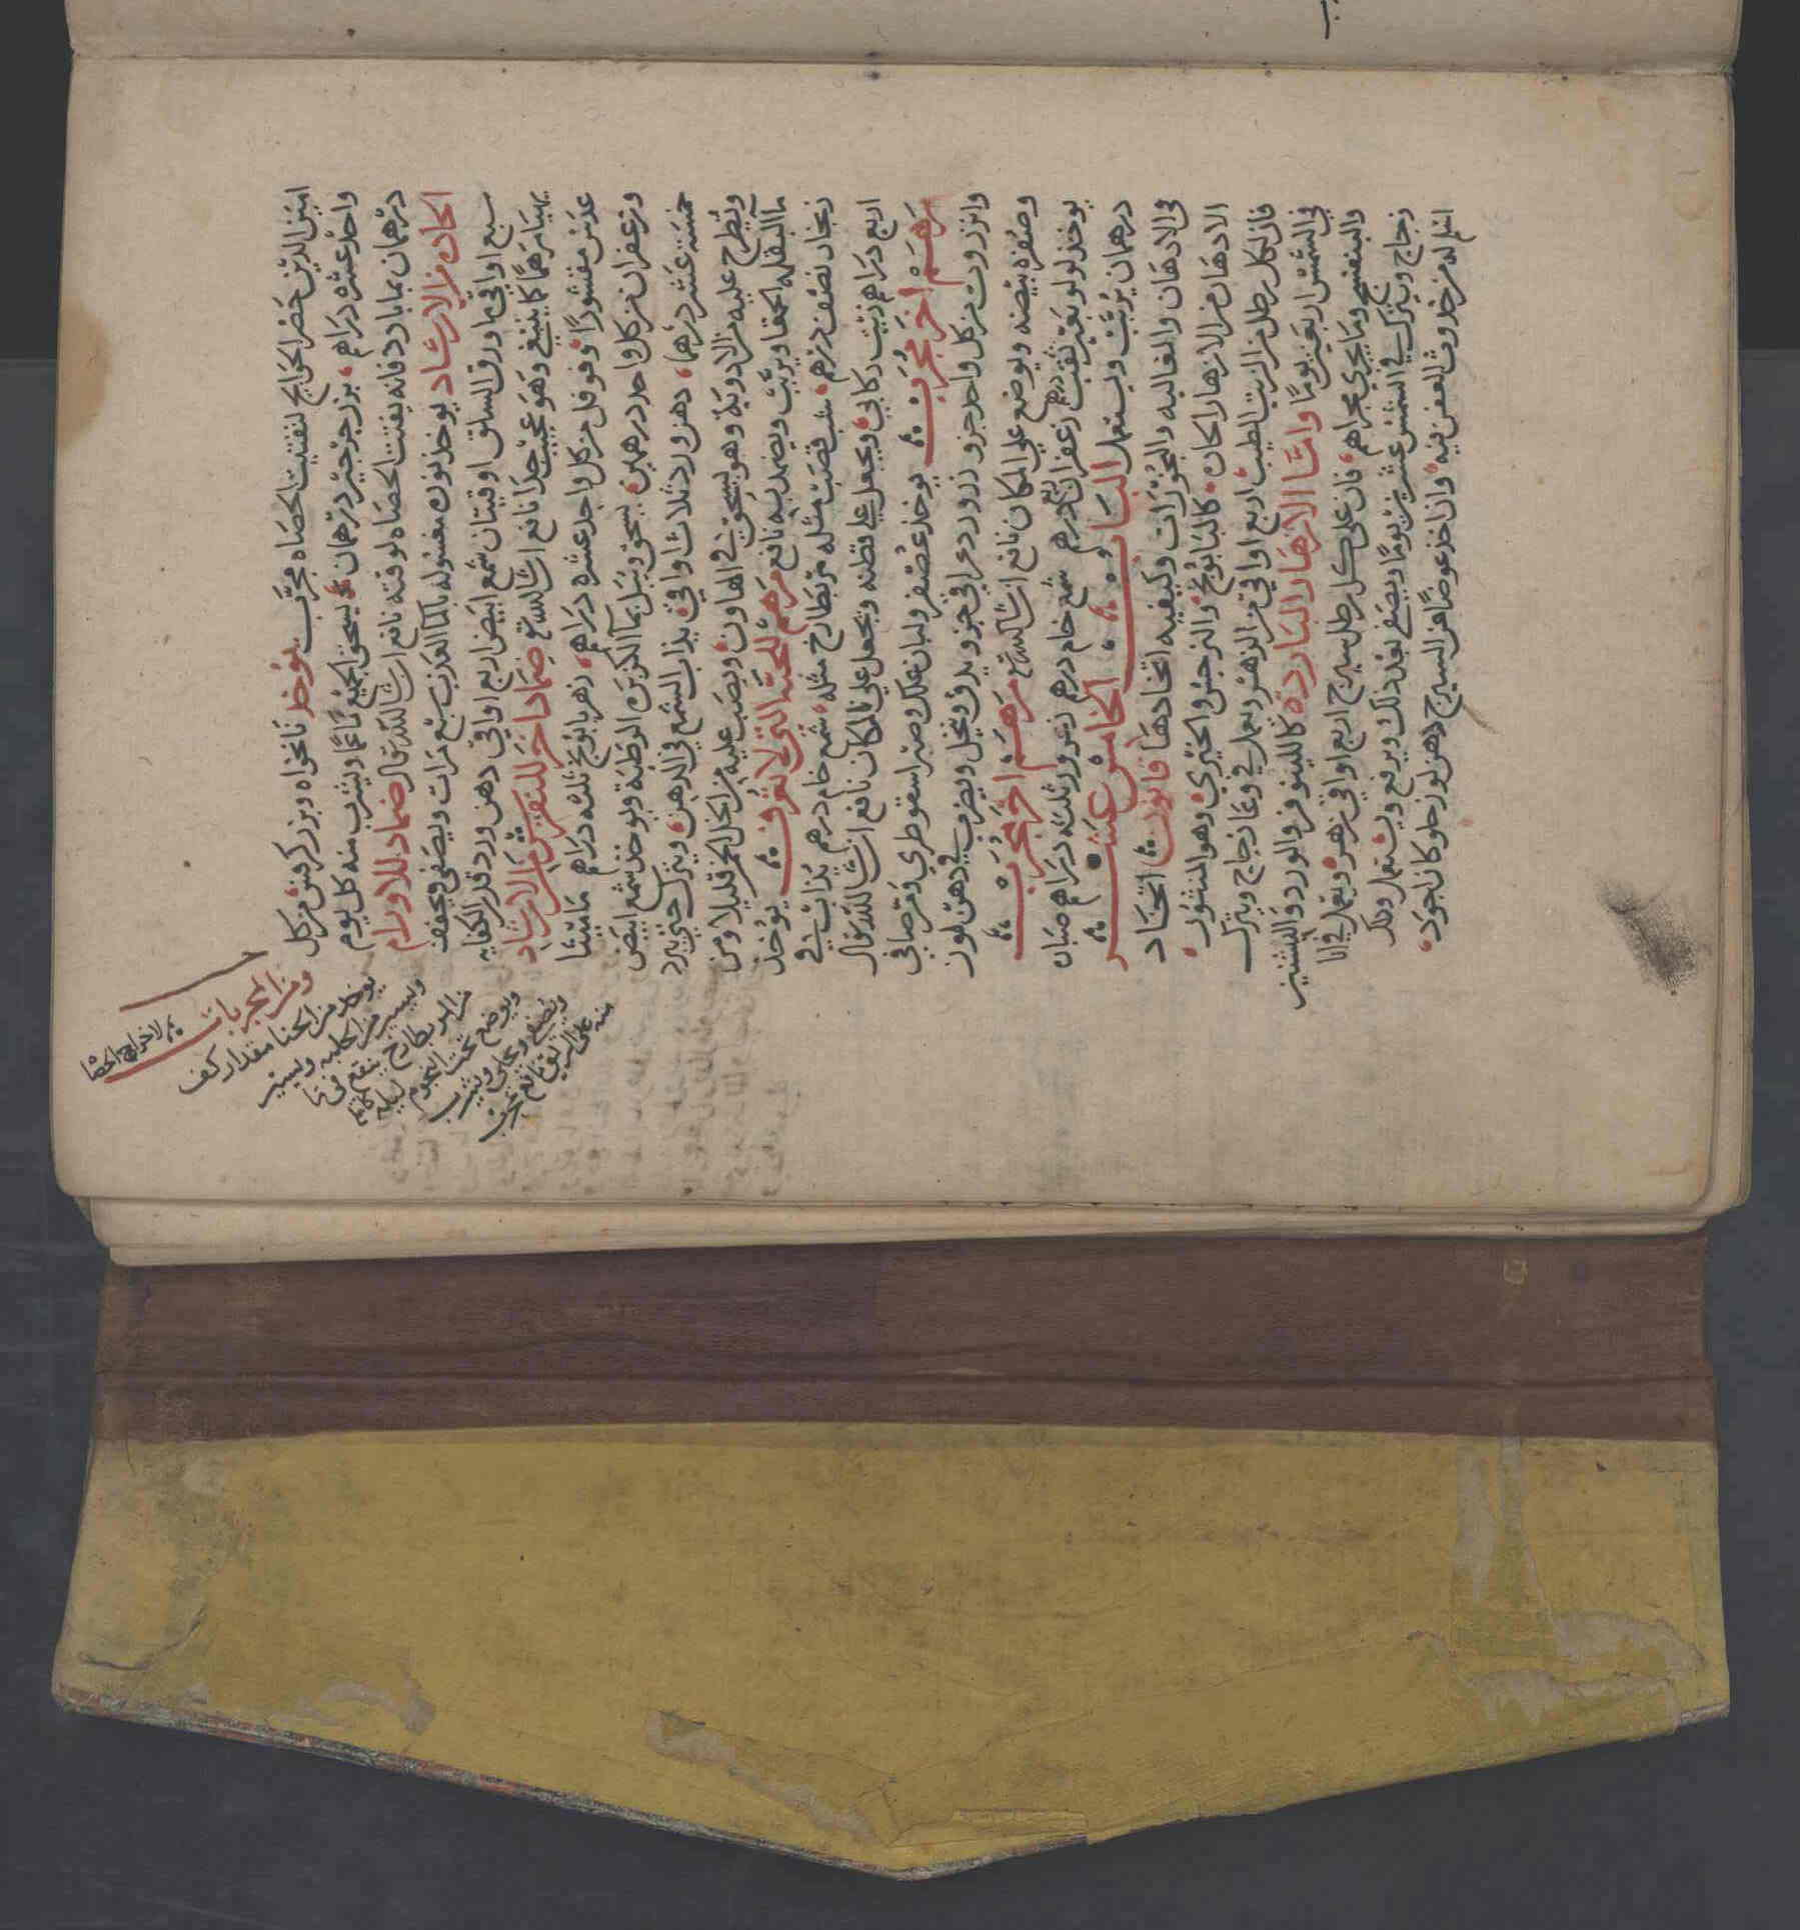 امين الدين خضر الحوايج لتفتيت الحصاه مجرب يوخذ نانخواه وبزر كرفس من كل
واحد عشره دراهم بزر جرجير درهمان يسحق الجميع ناعما ويشرب منه كل يوم
درهمان بما بارد فانه يفتت الحصاه لوقته نافع ان شا الله تعالى ضماد للاورام
الحاره من الارشاد يوخذ نوره مغسوله بالما العذب سبع مرات ويصفى ويجفف
سبع اواقي ما ورق السلق اوقيتان شمع ابيض اربع اواقي دهن ورد قدر الكفايه
يهيا مرهما كما ينبغي وهو عجيب جدا نافع ان شا الله تع ضماد اخر للنقرس من الارشاد
عدس مقشور وفوفل من كل واحد عشره دراهم زهر بابونج ثلثه دراهم ماميثا
وزعفران من كل واحد درهمين يسحق ويبل بما الكزبره الرطبه ويوخذ شمع ابيض
خمسه عشر درهما دهن ورد ثلاث اواقي يذاب الشمع في الدهن ويترك حتى يبرد
ويطرح عليه من الادويه وهو يسحق في الهاون ويصب عليه من الخل الخمر قليلا ومن
ما البقله الحمقا ويرتب ويضمد به نافع مرهم للحبه التي لا تعرف يوخذ
زنجار نصف درهم شب قصب مثله مرتك مثله شمع خام درهم يذاب في
اربع دراهم زيت ركابي ويجعل على قطنه وتجعل على المكان نافع ان شا الله تعالى
مرهم اخر مجرب يوخذ عصفر ولبان علك وصبر اسقوطري ومر صافي
وانزروت من كل واحد جزو زرورد عراقي جزو يدق وينخل ويضرب في دهن لوز
وصفره بيضه ويوضع على المكان نافع ان شا الله تع مرهم اخر مجرب
يوخذ لولو بغير ثقب درهم زعفران ربع درهم شمع خام درهم زعرور ثلثه دراهم صبان
درهمان يرتب ويستعمل الباب الخامس عشر
في الادهان والغاليه والبخورات وكيفيه اتخادها قانون اتخاد
الادهان من الازهار الحاره كالبابونج والنرجس والخيري وهو المنثور
فان لكل رطل من الزيت الطيب اربع اواقي من الزهر ويعمل في وعا زجاج ويترك
في الشمس اربعين يوما واما الازهار البارده كاللينوفر والورد والبشنين
والبنفسج وما يجري مجراهم فان على كل رطل سيرج اربع اواقي زهر ويعمل في انا
زجاج ويترك في الشمس عشرين يوما ويصفى بعد ذلك ويرفع ويستعمل وذلك
اسلم له من حدوث العفن فيه وان اخذ عوضا عن السيرج دهن لوز حلو كان اجود
ومن المجربات
لاخراج الحصا
يوخذ من الحنا مقدار كف
ويسير من الحلبه ويسير
ينقع في ما
ويوضع تحت النجوم ليله
ويصفى ويحلى ويشرب
منه على الريق نافع مجرب